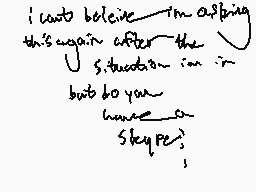 i cant beleive im asking
this again after the
situation im in
but do you
have a
skype;
;